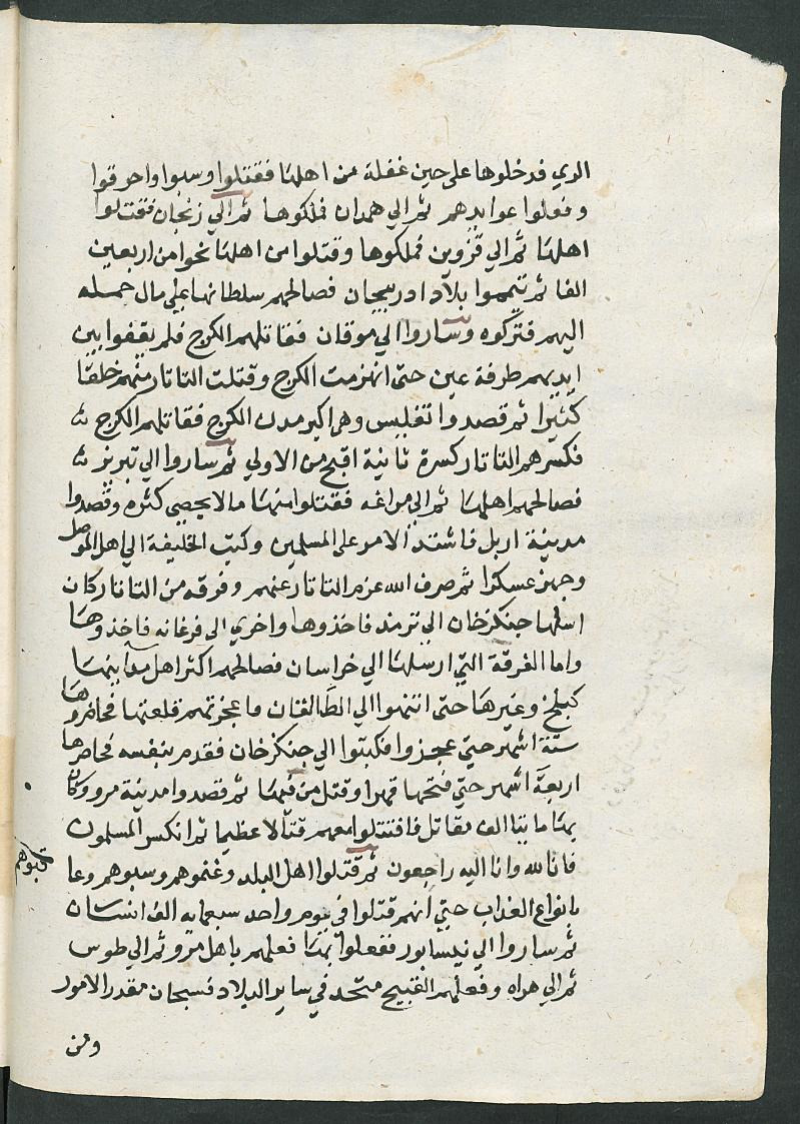 الري فدخلوها على حين غفلة من اهلها فقتلوا وسبوا واحرقوا
وفعلوا عوايدهم ثم الي همدان فملكوها ثم الي زنجان فقتلوا
اهلها ثم الي قزوين فملكوها وقتلوا من اهلها نحوا من اربعين
الفا ثم تيمموا بلاد ادربيجان فصالحهم سلطانها علي مال حمله
اليهم فتركوه وساروا الي موقان فقاتلهم الكرج فلم يقفوا بين
ايديهم طرفة عين حتى انهزمت الكرج وقتلت التاتار منهم خلقا
كثيرا ثم قصدوا تفليس وهي اكبر مدن الكرج فقاتلهم الكرج
فكسرهم التاتار كسرة ثانية اقبح من الاولي ثم ساروا الي تبريز
فصالحهم اهلها ثم الي مراغه فقتلوا منها ما لا يحصي كثره وقصدوا
مدينة اربل فاشتد الامر على المسلمين وكتب الخليفة الي اهل الموصل
وجهز عسكرا ثم صرف الله عزم التاتار عنهم وفرقه من التاتار كان
ارسلها جنكزخان الي ترمد فاخذوها واخري الى فرغانه فاخذوها
واما الفرقة التي ارسلها الي خراسان فصالحهم اكثر اهل مداينها
كبلخ وغيرها حتى انتهوا الي الطالقان فاعجزتهم قلعتها فحاصروها
ستة اشهر حتي عجزوا فكتبوا الي جنكزخان فقدم بنفسه فحاصرها
اربعة اشهر حتي فتحها قهرا وقتل من فيها ثم قصدوا مدينة مرو وكان
بها مايتا الف مقاتل فاقتتلوا معهم قتالا عظيما ثم انكسر المسلمون
فانا لله وانا اليه راجعون ثم قتلوا اهل البلد وغنموهم وسبوهم وعا
قبوهم
بانواع العذاب حتي انهم قتلوا في يوم واحد سبعمايه الف انسان
ثم ساروا الي نيسابور ففعلوا بها فعلهم باهل مرو ثم الي طوس
ثم الي هراه وفعلهم القبيح متحد في ساير البلاد فسبحان مقدر الامور
ومن